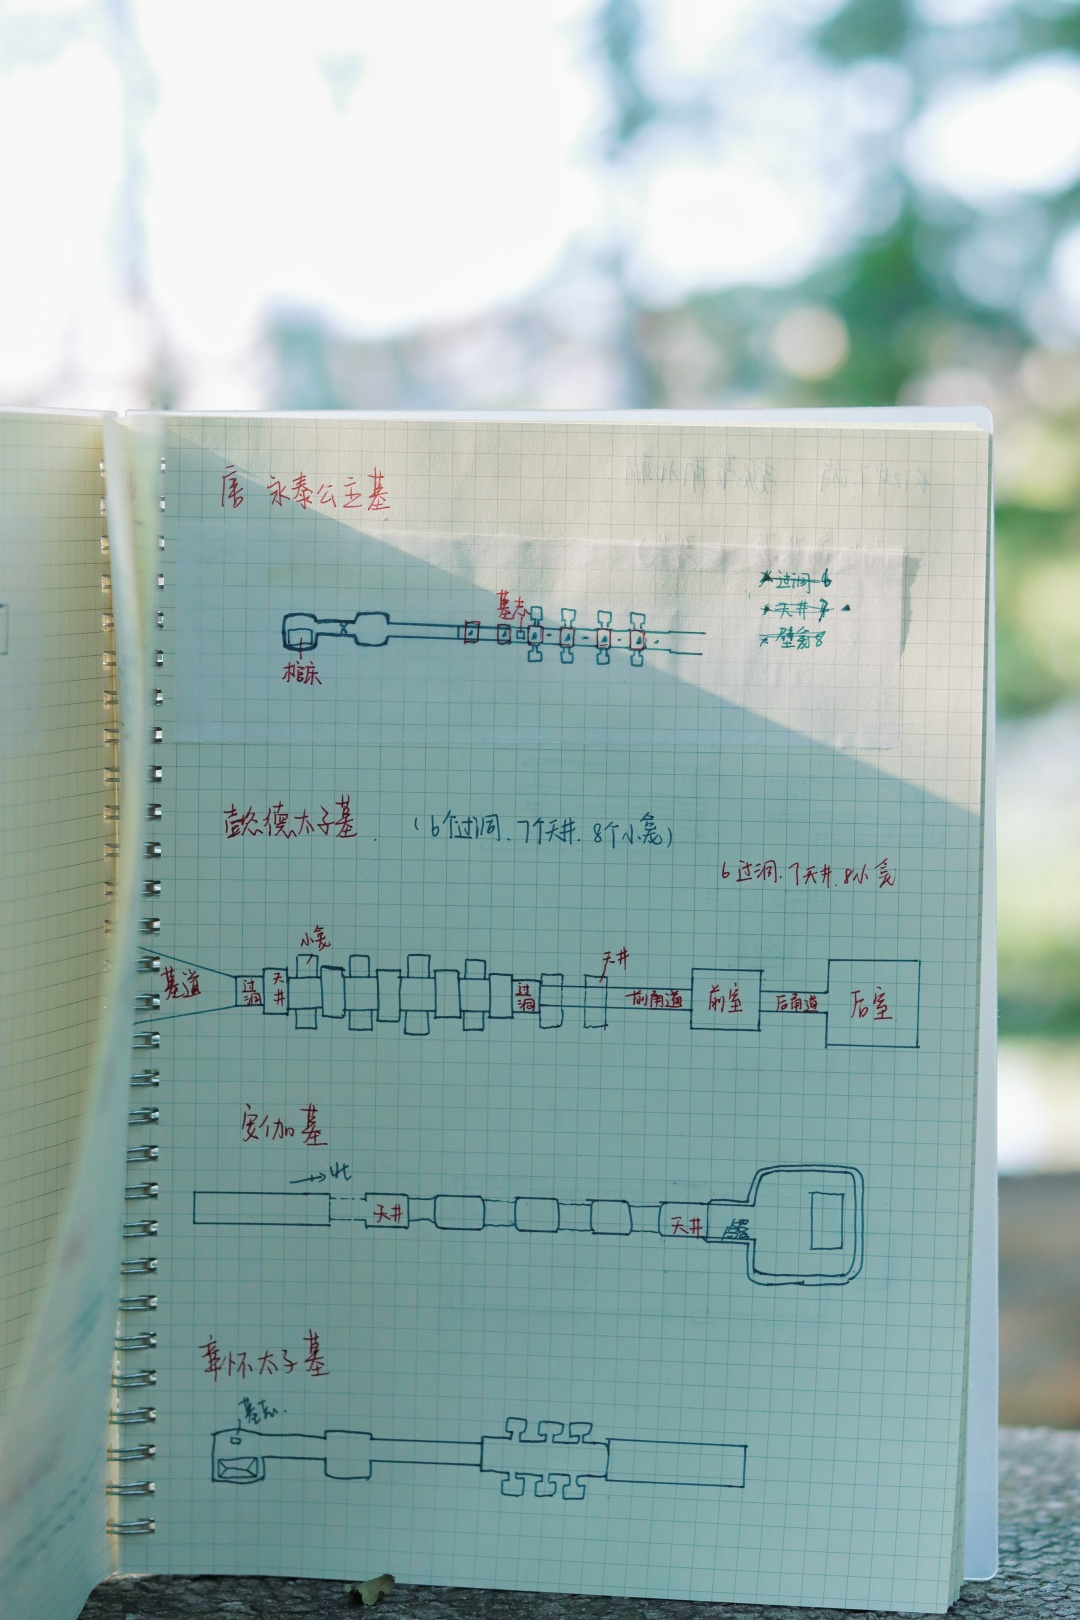 唐 永泰公主墓
过洞 6
天井 7
壁龛 8
墓志
棺床
懿德太子墓 (6个过洞、7个天井、8个小龛)
6过洞、7天井、8小龛
小龛
天井
墓道
过洞
天井
过洞
前甬道
前室
后甬道
后室
安伽墓
北
天井
天井
章怀太子墓
墓志